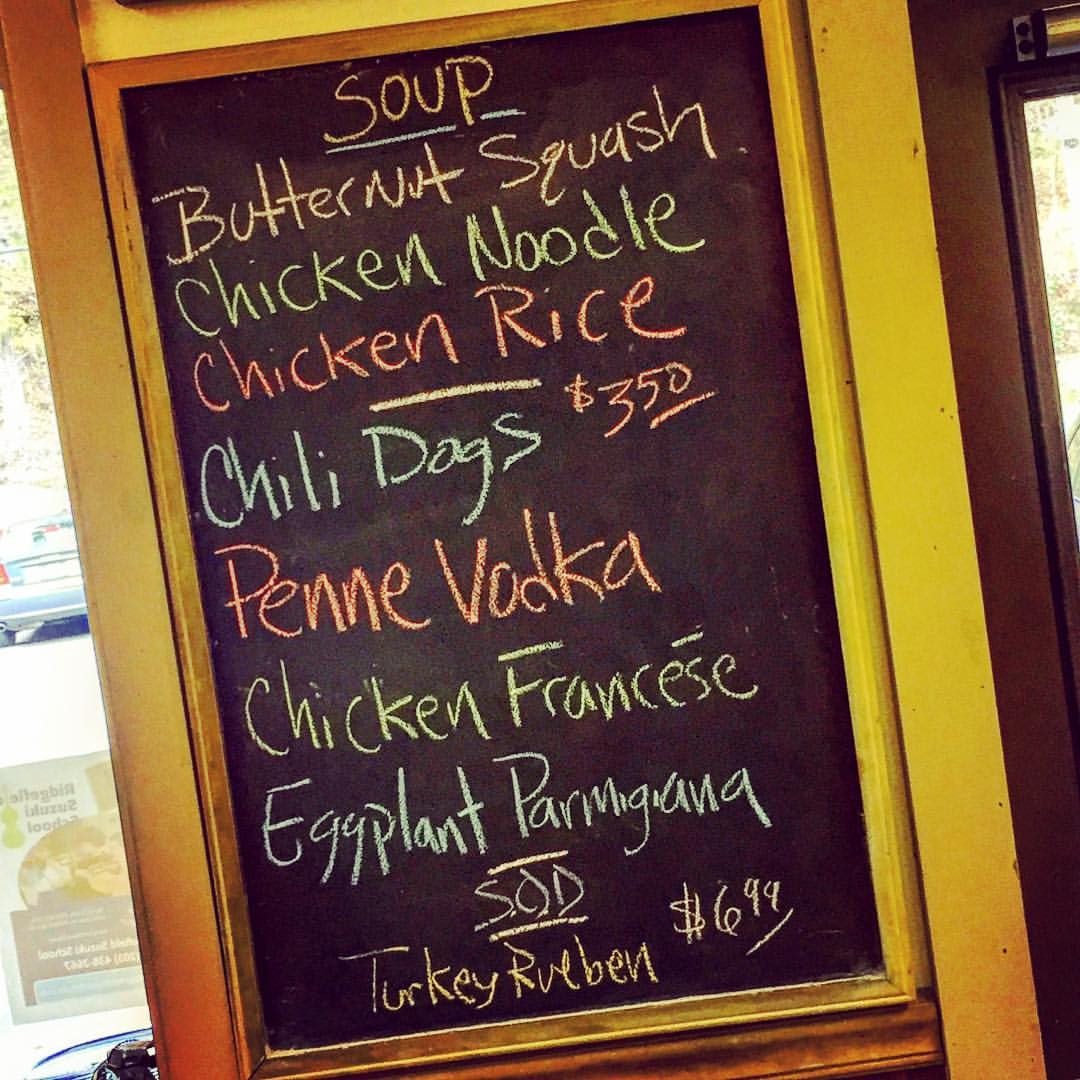 SOUP
Butternut Squash
Chicken Noodle
Chicken Rice
$3.50
Chili Dogs
Penne Vodka
Chicken Francese
Eggplant Parmigiana
SOD
$6.99
Turkey Rueben
Ridgefield
Suzuki
School